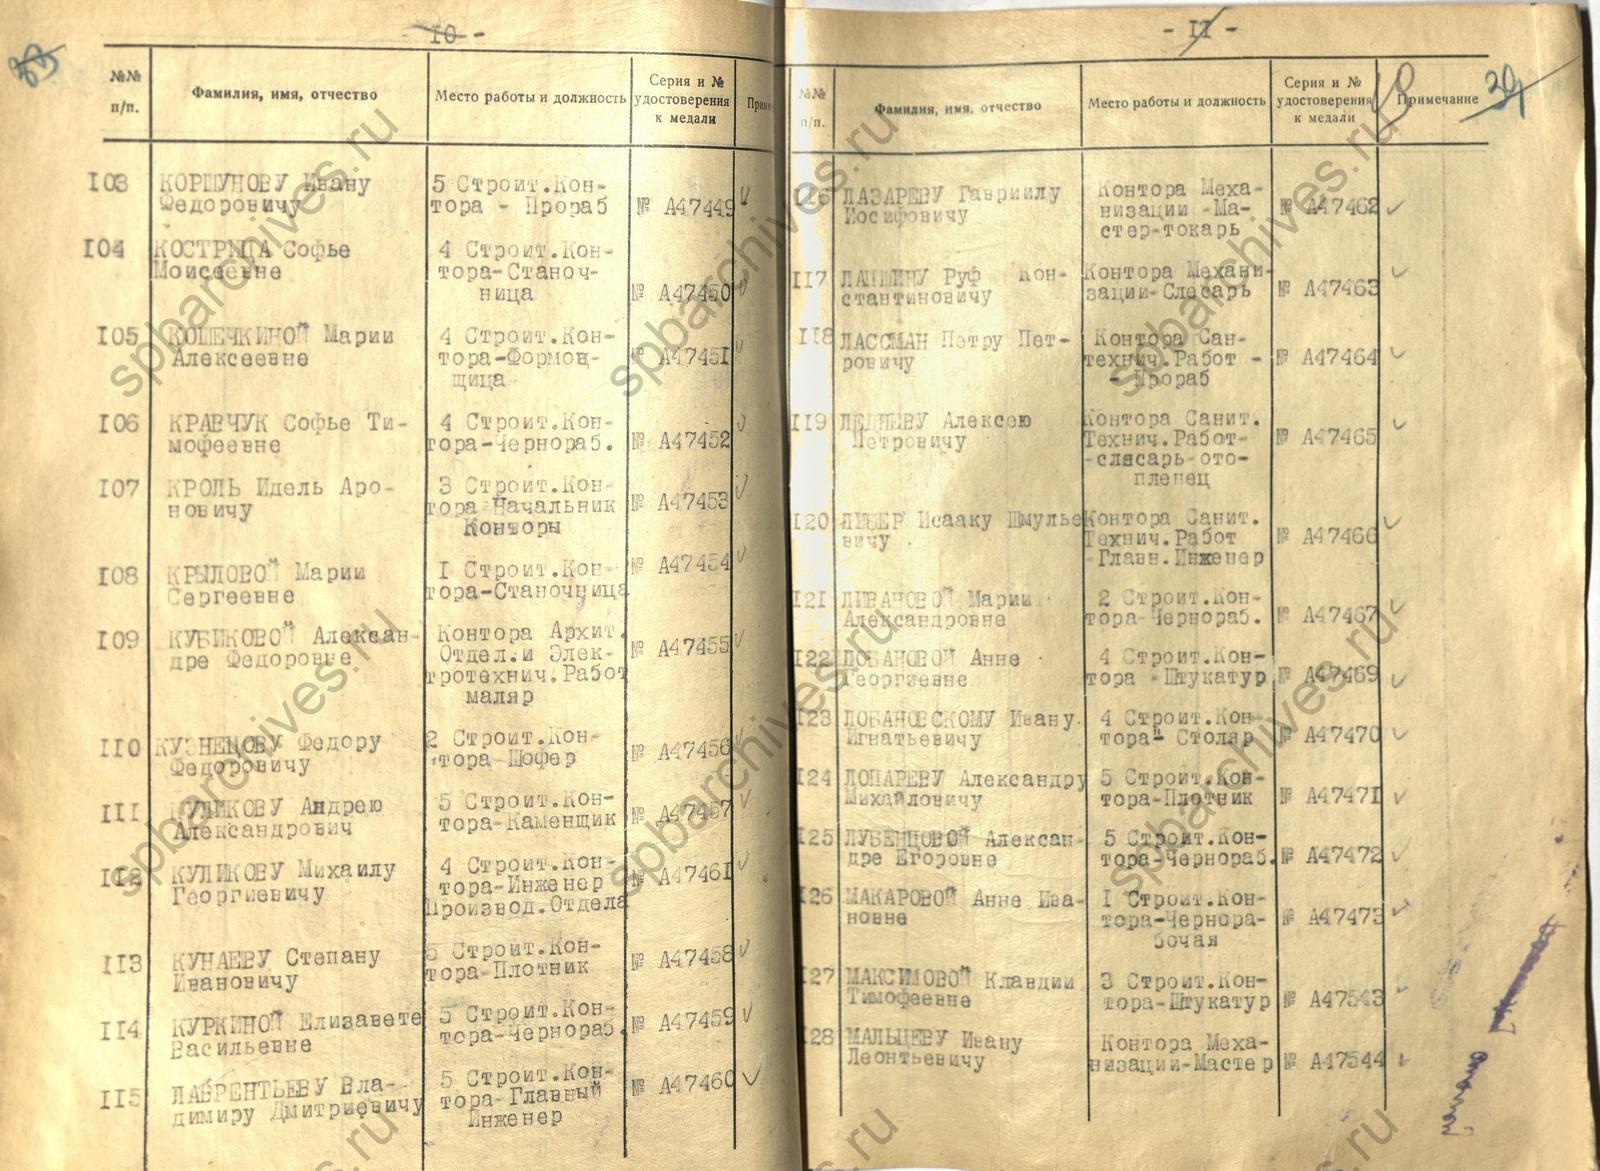 - 10 -
№№ п/п.
Фамилия, имя, отчество
Место работы и должность
Серия и № удостоверения к медали
103 КОРШУНОВУ Ивану Федоровичу
5 Строит.Кон-
тора - Прораб
№ А47449
104 КОСТРИЦА Софье Моисеевне
4 Строит.Кон-
тора-Станоч-
ница
№ А47450
105 КОШЕЧКИНОЙ Марии Алексеевне
4 Строит.Кон-
тора-Формов-
щица
№ А47451
106 КРАВЧУК Софье Ти-
мофеевне
4 Строит.Кон-
тора-Чернораб.
№ А47452
107 КРОЛЬ Идель Аро-
новичу
3 Строит.Кон-
тора Начальник
Конторы
№ А47453
108 КРЫЛОВОЙ Марии
Сергеевне
1 Строит.Кон-
тора-Станочница
№ А47454
109 КУБИКОВОЙ Алексан-
дре Федоровне
Контора Архит.
Отдел.и Элек-
тротехнич.Работ
маляр
№ А47455
110 КУЗНЕЦОВУ Федору
Федоровичу
2 Строит.Кон-
тора-Шофер
№ А47456
111 КУЛИКОВУ Андрею
Александрович
5 Строит.Кон-
тора-Каменщик
№ А47457
112 КУЛИКОВУ Михаилу
Георгиевичу
4 Строит.Кон-
тора-Инженер
Производ.Отдела
№ А47461
113 КУНАЕВУ Степану
Ивановичу
5 Строит.Кон-
тора-Плотник
№ А47458
114 КУРКИНОЙ Елизавете
Васильевне
5 Строит.Кон-
тора-Чернораб.
№ А47459
115 ЛАВРЕНТЬЕВУ Вла-
димиру Дмитриевичу
5 Строит.Кон-
тора-Главный
Инженер
№ А47460
- 11 -
№№ п/п.
Фамилия, имя, отчество
Место работы и должность
Серия и № удостоверения к медали
Примечание
34
116 ЛАЗАРЕВУ Гавриилу
Иосифовичу
Контора Меха-
низации -Ма-
стер-токарь
№ А47462
117 ЛАПШИНУ Руф Кон-
стантиновичу
Контора Механи-
зации-Слесарь
№ А47463
118 ЛАССМАН Петру Пет-
ровичу
Контора Сан-
технич.Работ -
- Прораб
№ А47464
119 ЛЕДНЕВУ Алексею
Петровичу
Контора Санит.
Технич.Работ-
-слясарь-ото-
пленец
№ А47465
120 ЛИБЕР Исааку Шмулье
вичу
Контора Санит.
Технич.Работ
-Главн.Инженер
№ А47466
121 ЛИВАНОВОЙ Марии
Александровне
2 Строит.Кон-
тора-Чернораб.
№ А47467
122 ЛОБАНОВОЙ Анне
Георгиевне
4 Строит.Кон-
тора -Штукатур
№ А47469
123 ЛОБАНОВСКОМУ Ивану
Игнатьевичу
4 Строит.Кон-
тора- Столяр
№ А47470
124 ЛОПАРЕВУ Александру
Михайловичу
5 Строит.Кон-
тора-Плотник
№ А47471
125 ЛУБЕНЦОВОЙ Алексан-
дре Егоровне
5 Строит.Кон-
тора-Чернораб.
№ А47472
126 МАКАРОВОЙ Анне Ива-
новне
1 Строит.Кон-
тора-Чернора-
бочая
№ А47473
127 МАКСИМОВОЙ Клавдии
Тимофеевне
3 Строит.Кон-
тора-Штукатур
№ А47543
128 МАЛЬЦЕВУ Ивану
Леонтьевичу
Контора Меха-
низации-Мастер
№ А47544
spbarchives.ru
spbarchives.ru
spbarchives.ru
spbarchives.ru
spbarchives.ru
spbarchives.ru